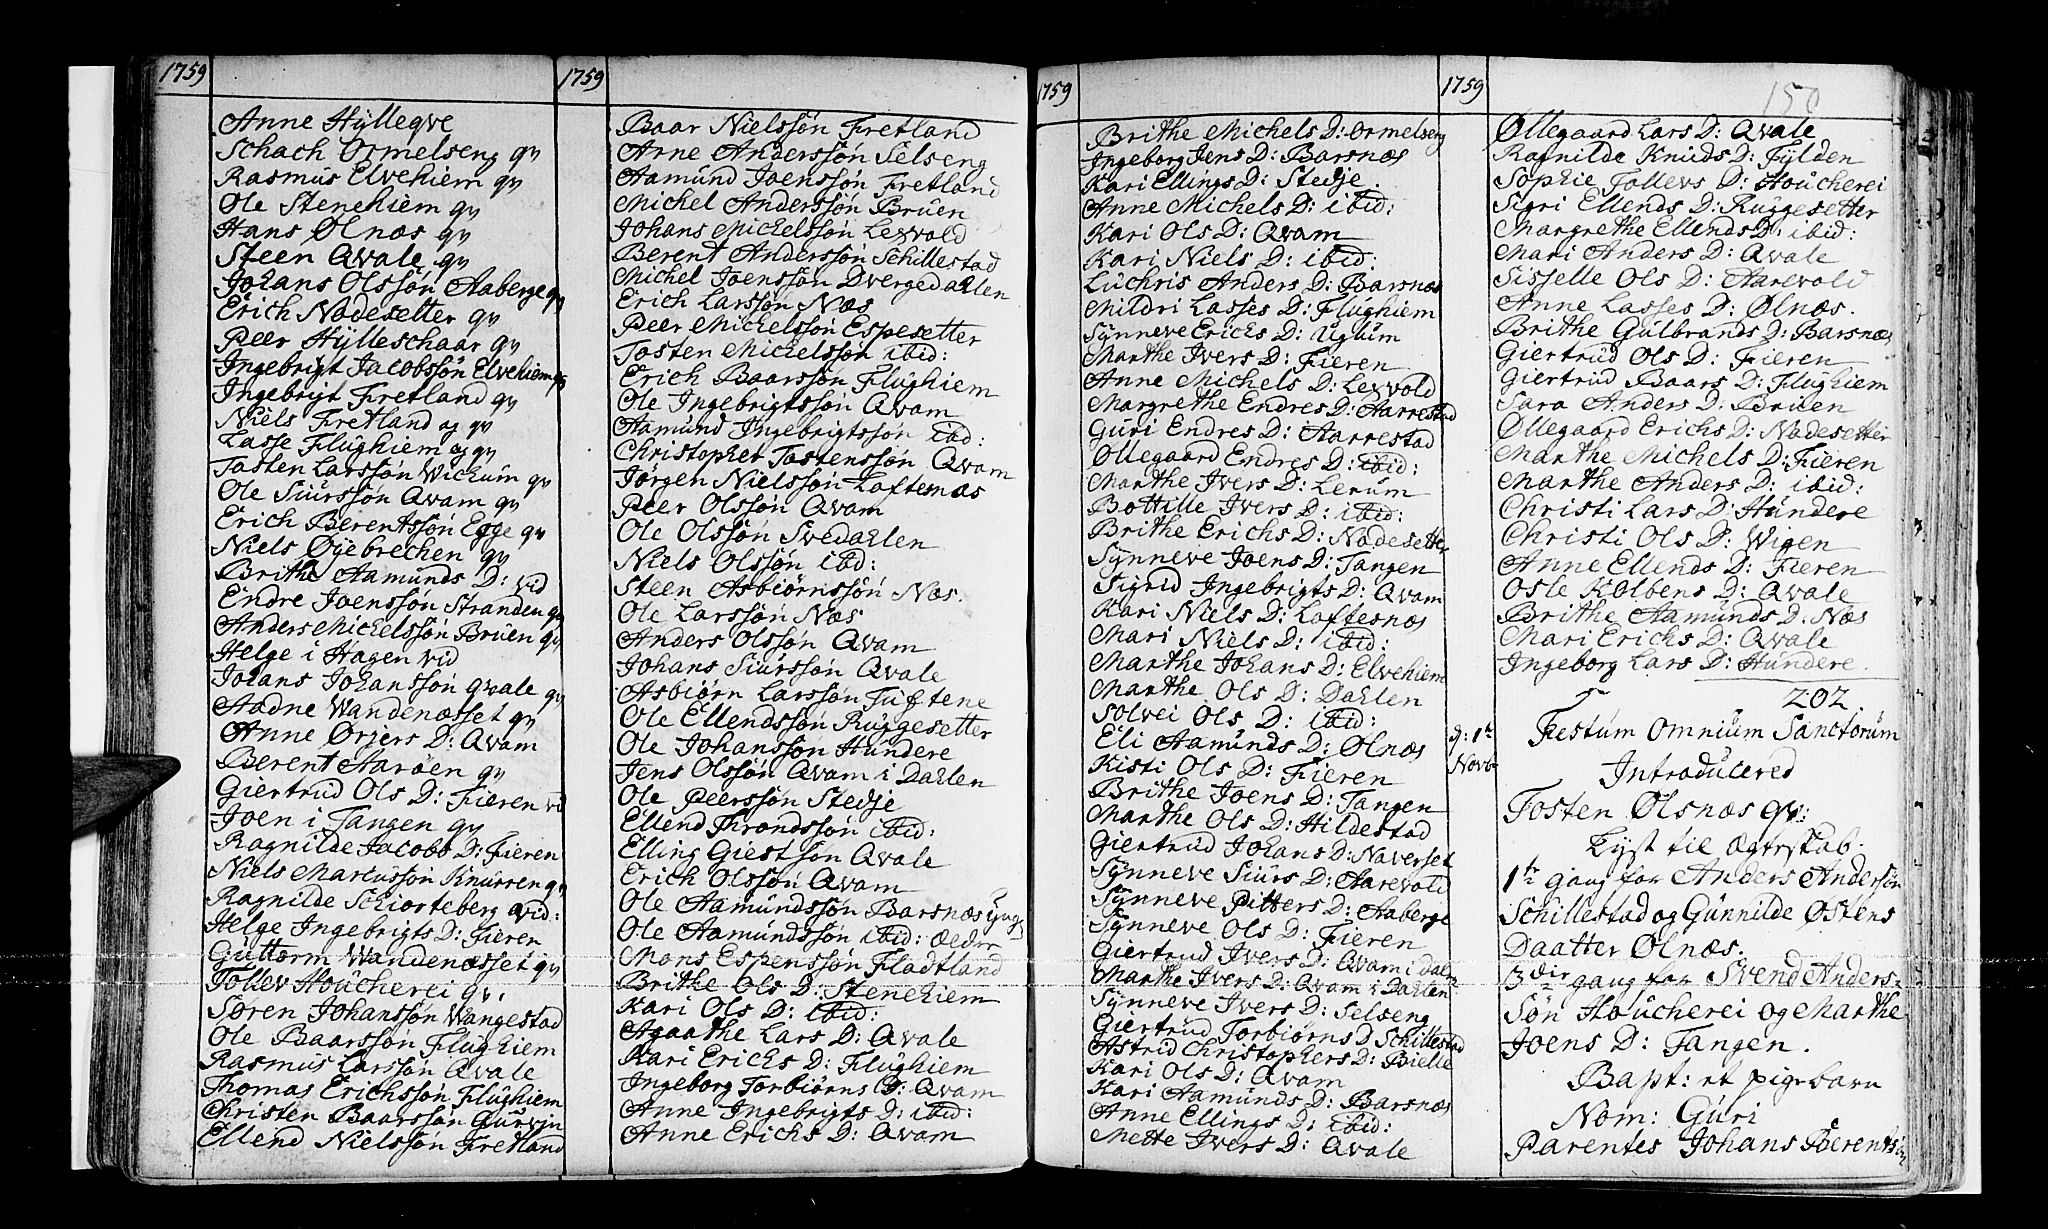 1759
Anne Hÿlleqve
Schach Ormelseng qv
Rasmus Elvehiem qv
Ole Stenehiem qv
Hans Ølnæs qv
Steen Qvale qv
Johans Olssøn Aaberge qv
Erich Nadesetter qv
Peer Hÿlleschaar qv
Ingebrigt Jacobssøn Elvehiem qv
Ingebrigt Fretland qv
Niels Fretland og qv
Lasse Flughiem og qv
Tosten Larssøn Wichum qv
Ole Siurssøn Qvam qv
Erich Berentssøn Egge qv
Niels Øyebrechen qv
Brithe Aamunds D: vid
Endre Joenssøn Stranden qv
Anders Michelssøn Bruen qv
Helge i Hagen vid
Johans Johanssøn Qvale qv
Aadne Wandenæsset qv
Anne Ørjers D: Qvam
Berent Aarøen qv
Giertrud Ols D: Fieren vid
Joen i Tangen qv
Ragnilde Jacobs D: Fieren
Niels Marcussøn Knurren qv
Ragnilde Schiorteberg vid:
Helge Ingebrigts D: Fieren
Guttorm Wandenæsset qv
Tollev Houcherei qv.
Søren Johanssøn Wangestad
Ole Baarssøn Flughiem
Rasmus Larssøn Qvale
Thomas Erichssøn Flughiem
Christen Baarssøn Gurvin
Ellend Nielssøn Fretland
1759
Baar Nielssøn Fretland
Arne Anderssøn Selseng
Aamund Joenssøn Fretland
Michel Anderssøn Bruen
Johans Michelssøn Lexvold
Berent Anderssøn Schillestad
Michel Joenssøn Dvergedahlen
Erich Larssøn Næs
Peer Michelssøn Espesetter
Tosten Michelssøn ibid:
Erich Baarssøn Flughiem
Ole Ingebrigtssøn Qvam
Aamund Ingebrigtssøn ibid:
Christopher Tostenssøn Qvam
Jørgen Nielssøn Loftesnæs
Peer Olssøn Qvam
Ole Olssøn Svedahlen
Niels Olssøn ibid:
Steen Asbiørnssøn Næs.
Ole Larssøn Næs
Anders Olssøn Qvam
Johans Siurssøn Qvale
Asbiørn Larssøn Tuftene
Ole Ellendssøn Ruggesetter
Ole Johanssøn Hundere
Jens Olssøn Qvam i Dahlen
Ole Peerssøn Stedje
Ellend Throndssøn ibid:
Elling Giestssøn Qvale
Erich Olssøn Qvam
Ole Aamundssøn Barsnæs Yngr
Ole Aamundssøn ibid: Ældre
Mons Espenssøn Fladtland
Brithe Ols D: Stenehiem
Kari Ols D: ibid:
Agaathe Lars D: Qvale
Kari Erichs D: Flughiem
Ingeborg Torbiørns D: Qvam
Anne Ingebrigts D: ibid:
Anne Erichs D: Qvam
1759
Brithe Michels D: Ormelseng
Ingeborg Jens D: Barsnæs
Kari Ellings D: Stedje.
Anne Michels D: ibid:
Kari Ols D: Qvam
Kari Niels D: ibid:
Luchris Anders D: Barsnæs
Mildri Lasses D: Flughiem
Sÿnneve Erichs D: Uglum
Marthe Ivers D: Fieren
Anne Michels D: Lexvold
Margrethe Endres D: Aarrestad
Guri Endres D: Aarrestad
Øllegaard Endres D: ibid:
Marthe Ivers D: Lerum
Bottille Ivers D: ibid:
Brithe Erichs D: Nadesetter
Sÿnneve Joens D: Tangen
Sigrid Ingebrigts D: Qvam
Kari Niels D: Loftesnæs
Mari Niels D: ibid:
Marthe Johans D: Elvehiem
Marthe Ols D: Dahlen
Solvei Ols D: ibid:
Eli Aamunds D: Ølnæs
Kisti Ols D: Fieren
Brithe Joens D: Tangen
Marthe Ols D: Hildestad
Giertrud Johans D: Naverset
Sÿnneve Siurs D: Aarevold
Sÿnneve Pitters D: Aaberge
Sÿnneve Ols D: Fieren
Giertrud Ivers D: Qvam i Dalen
Marthe Ivers D: Qvam i Dahlen
Sÿnneve Ivers D: Selseng
Giertrud Torbiørns D Schillestad
Astrid Christophers D: Bielle
Kari Ols D: Qvam
Kari Aamunds D: Barsnæs
Anne Ellings D: ibid:
Mette Ivers D: Qvale
1759
150
Øllegaard Lars D: Qvale
Ragnilde Knuds D: Fÿlden
Sophie Tollevs D: Houcherei
Sigri Ellends D: Ruggesetter
Margrethe Ellends D: ibid:
Mari Anders D: Qvale
Sisselle Ols D: Aarevold
Anne Lasses D: Ølnæs.
Brithe Gulbrands D: Barsnæs
Giertrud Ols D: Fieren
Giertrud Baars D: Flughiem
Sara Anders D: Bruen
Øllegaard Erichs D: Nadesetter
Marthe Michels D: Fieren
Marthe Anders D: ibid:
Christi Lars D: Hundere
Christi Ols D: Wigen
Anne Ellends D: Fieren
Osle Kolbens D: Qvale
Brithe Aamunds D. Næs
Mari Erichs D: Qvale
Ingeborg Lars D: Hundere.
202.
d: 1te Novb
Festum Omnium Sanctorum
Introducered
Tosten Ølsnæs qv:
Lyst til Ægteskab.
1te gang for Anders Anderssøn
Schillestad og Gunnilde Østens
Daatter Ølnæs.
3die gang for Svend Anders=
Søn Houcherei og Marthe
Joens D: Tangen.
Bapt: et pigebarn
Nom: Guri
Parentes Johans Berentssøn